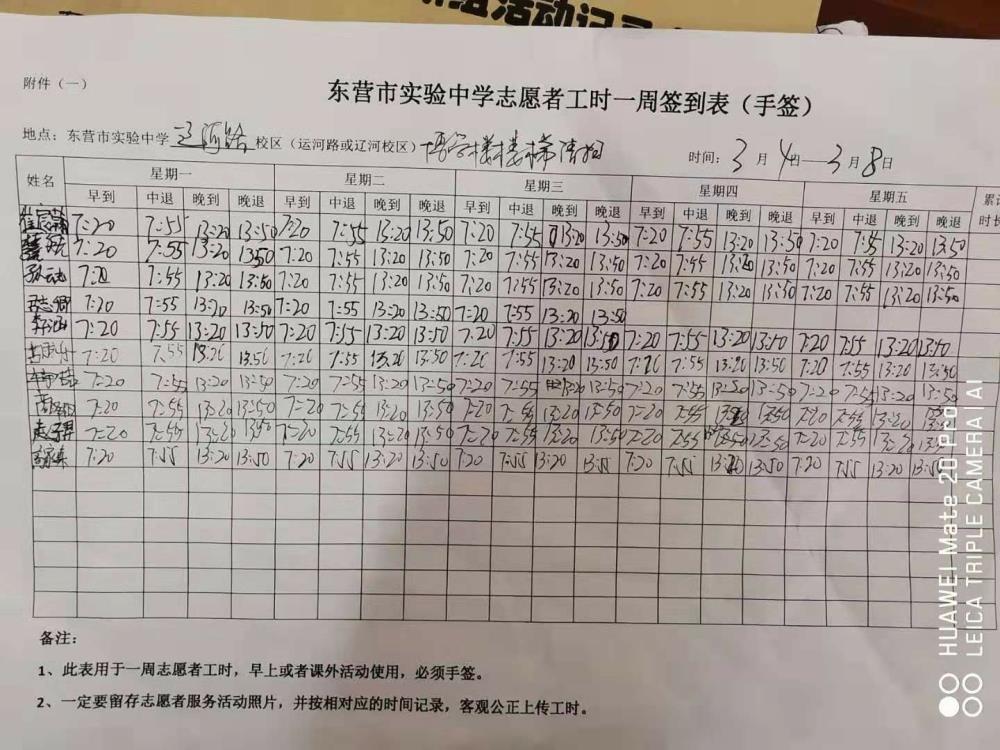 组活动记录
附件（一）
东营市实验中学志愿者工时一周签到表（手签）
地点：东营市实验中学 辽河路 校区（运河路或辽河校区） 楼楼梯清扫 时间：3 月 4日—3 月 8 日
姓名 星期一 星期二 星期三 星期四 星期五 累计时长
早到 中退 晚到 晚退 早到 中退 晚到 晚退 早到 中退 晚到 晚退 早到 中退 晚到 晚退 早到 中退 晚到 晚退
7:20 7:55 13:20 13:50 7:20 7:55 13:20 13:50 7:20 7:55 13:20 13:50 7:20 7:55 13:20 13:50 7:20 7:55 13:20 13:50
7:20 7:55 13:20 13:50 7:20 7:55 13:20 13:50 7:20 7:55 13:20 13:50 7:20 7:55 13:20 13:50 7:20 7:55 13:20 13:50
7:20 7:55 13:20 13:50 7:20 7:55 13:20 13:50 7:20 7:55 13:20 13:50 7:20 7:55 13:20 13:50 7:20 7:55 13:20 13:50
7:20 7:55 13:20 13:50 7:20 7:55 13:20 13:50 7:20 7:55 13:20 13:50
7:20 7:55 13:20 13:50 7:20 7:55 13:20 13:50 7:20 7:55 13:20 13:50 7:20 7:55 13:20 13:50 7:20 7:55 13:20 13:50
7:20 7:55 13:20 13:50 7:20 7:55 13:20 13:50 7:20 7:55 13:20 13:50 7:20 7:55 13:20 13:50 7:20 7:55 13:20 13:50
7:20 7:55 13:20 13:50 7:20 7:55 13:20 13:50 7:20 7:55 13:20 13:50 7:20 7:55 13:20 13:50 7:20 7:55 13:20 13:50
7:20 7:55 13:20 13:50 7:20 7:55 13:20 13:50 7:20 7:55 13:20 13:50 7:20 7:55 13:50 7:20 7:55 13:20
7:20 7:55 13:20 13:50 7:20 7:55 13:20 13:50 7:20 7:55 13:20 13:50 7:20 7:55 13:50 13:50 7:20 7:55 13:20
7:20 7:55 13:20 13:50 7:20 7:55 13:20 13:50 7:20 7:55 13:20 13:55 7:20 7:55 13:20 13:50 7:20 7:55 13:20 13:50
备注：
1、此表用于一周志愿者工时，早上或者课外活动使用，必须手签。
2、一定要留存志愿者服务活动照片，并按相对应的时间记录，客观公正上传工时。
HUAWEI Mate 20 PRO
LEICA TRIPLE CAMERA | AI